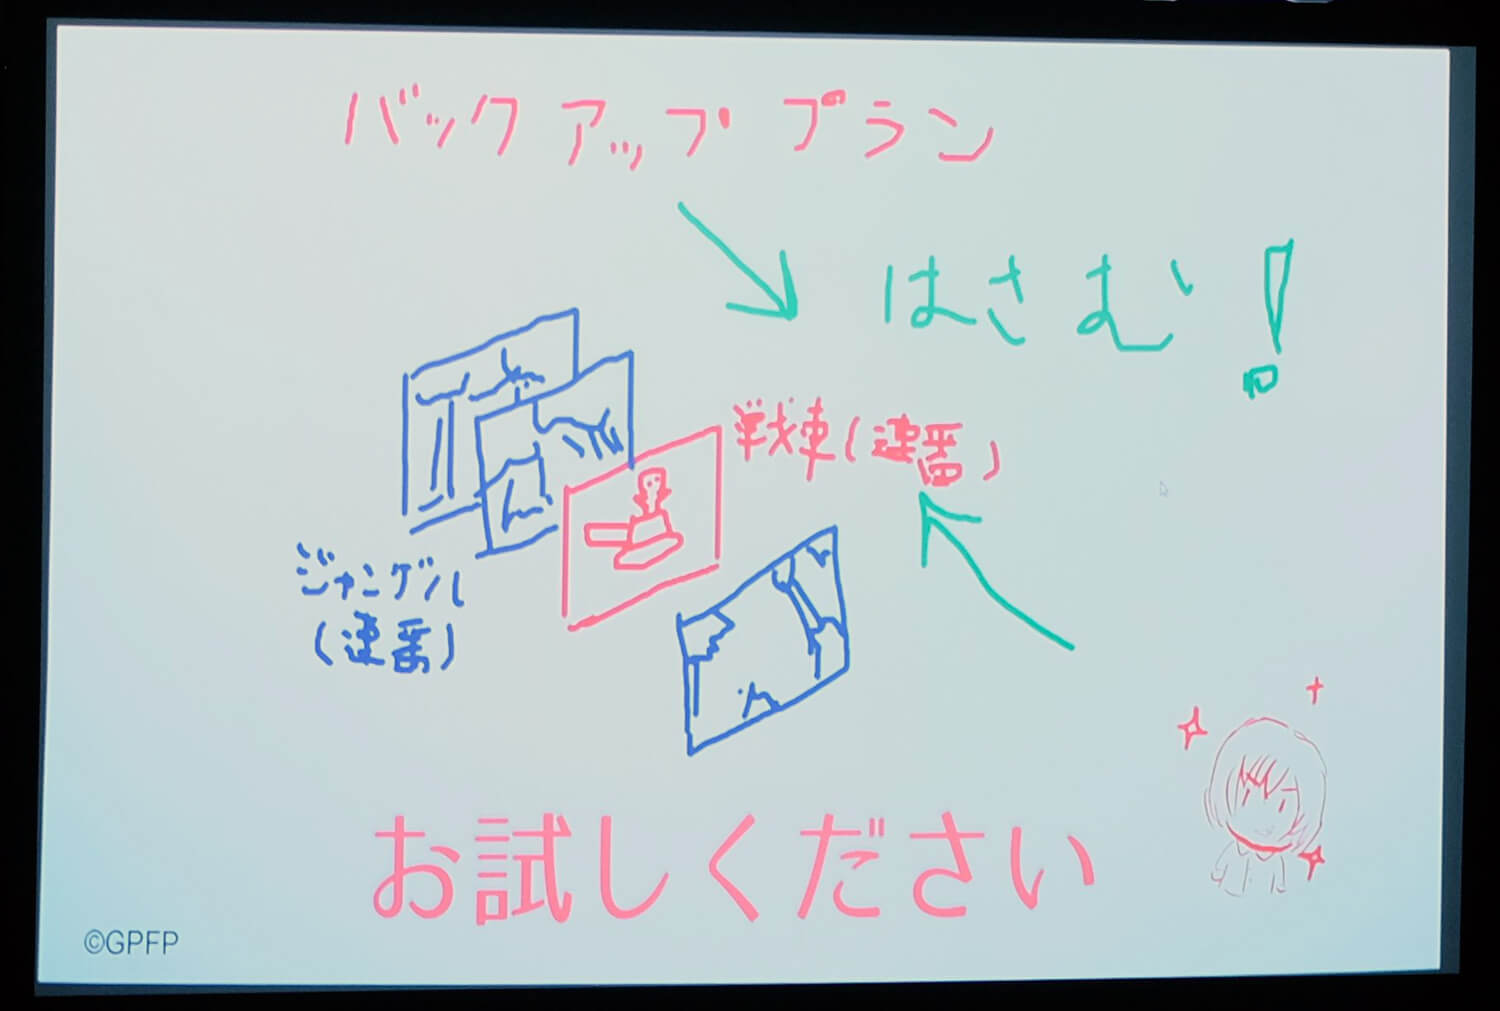 バックアッププラン
はさむ!
戦車(連番)
ジャングル
(連番)
お試しください
©GPFP